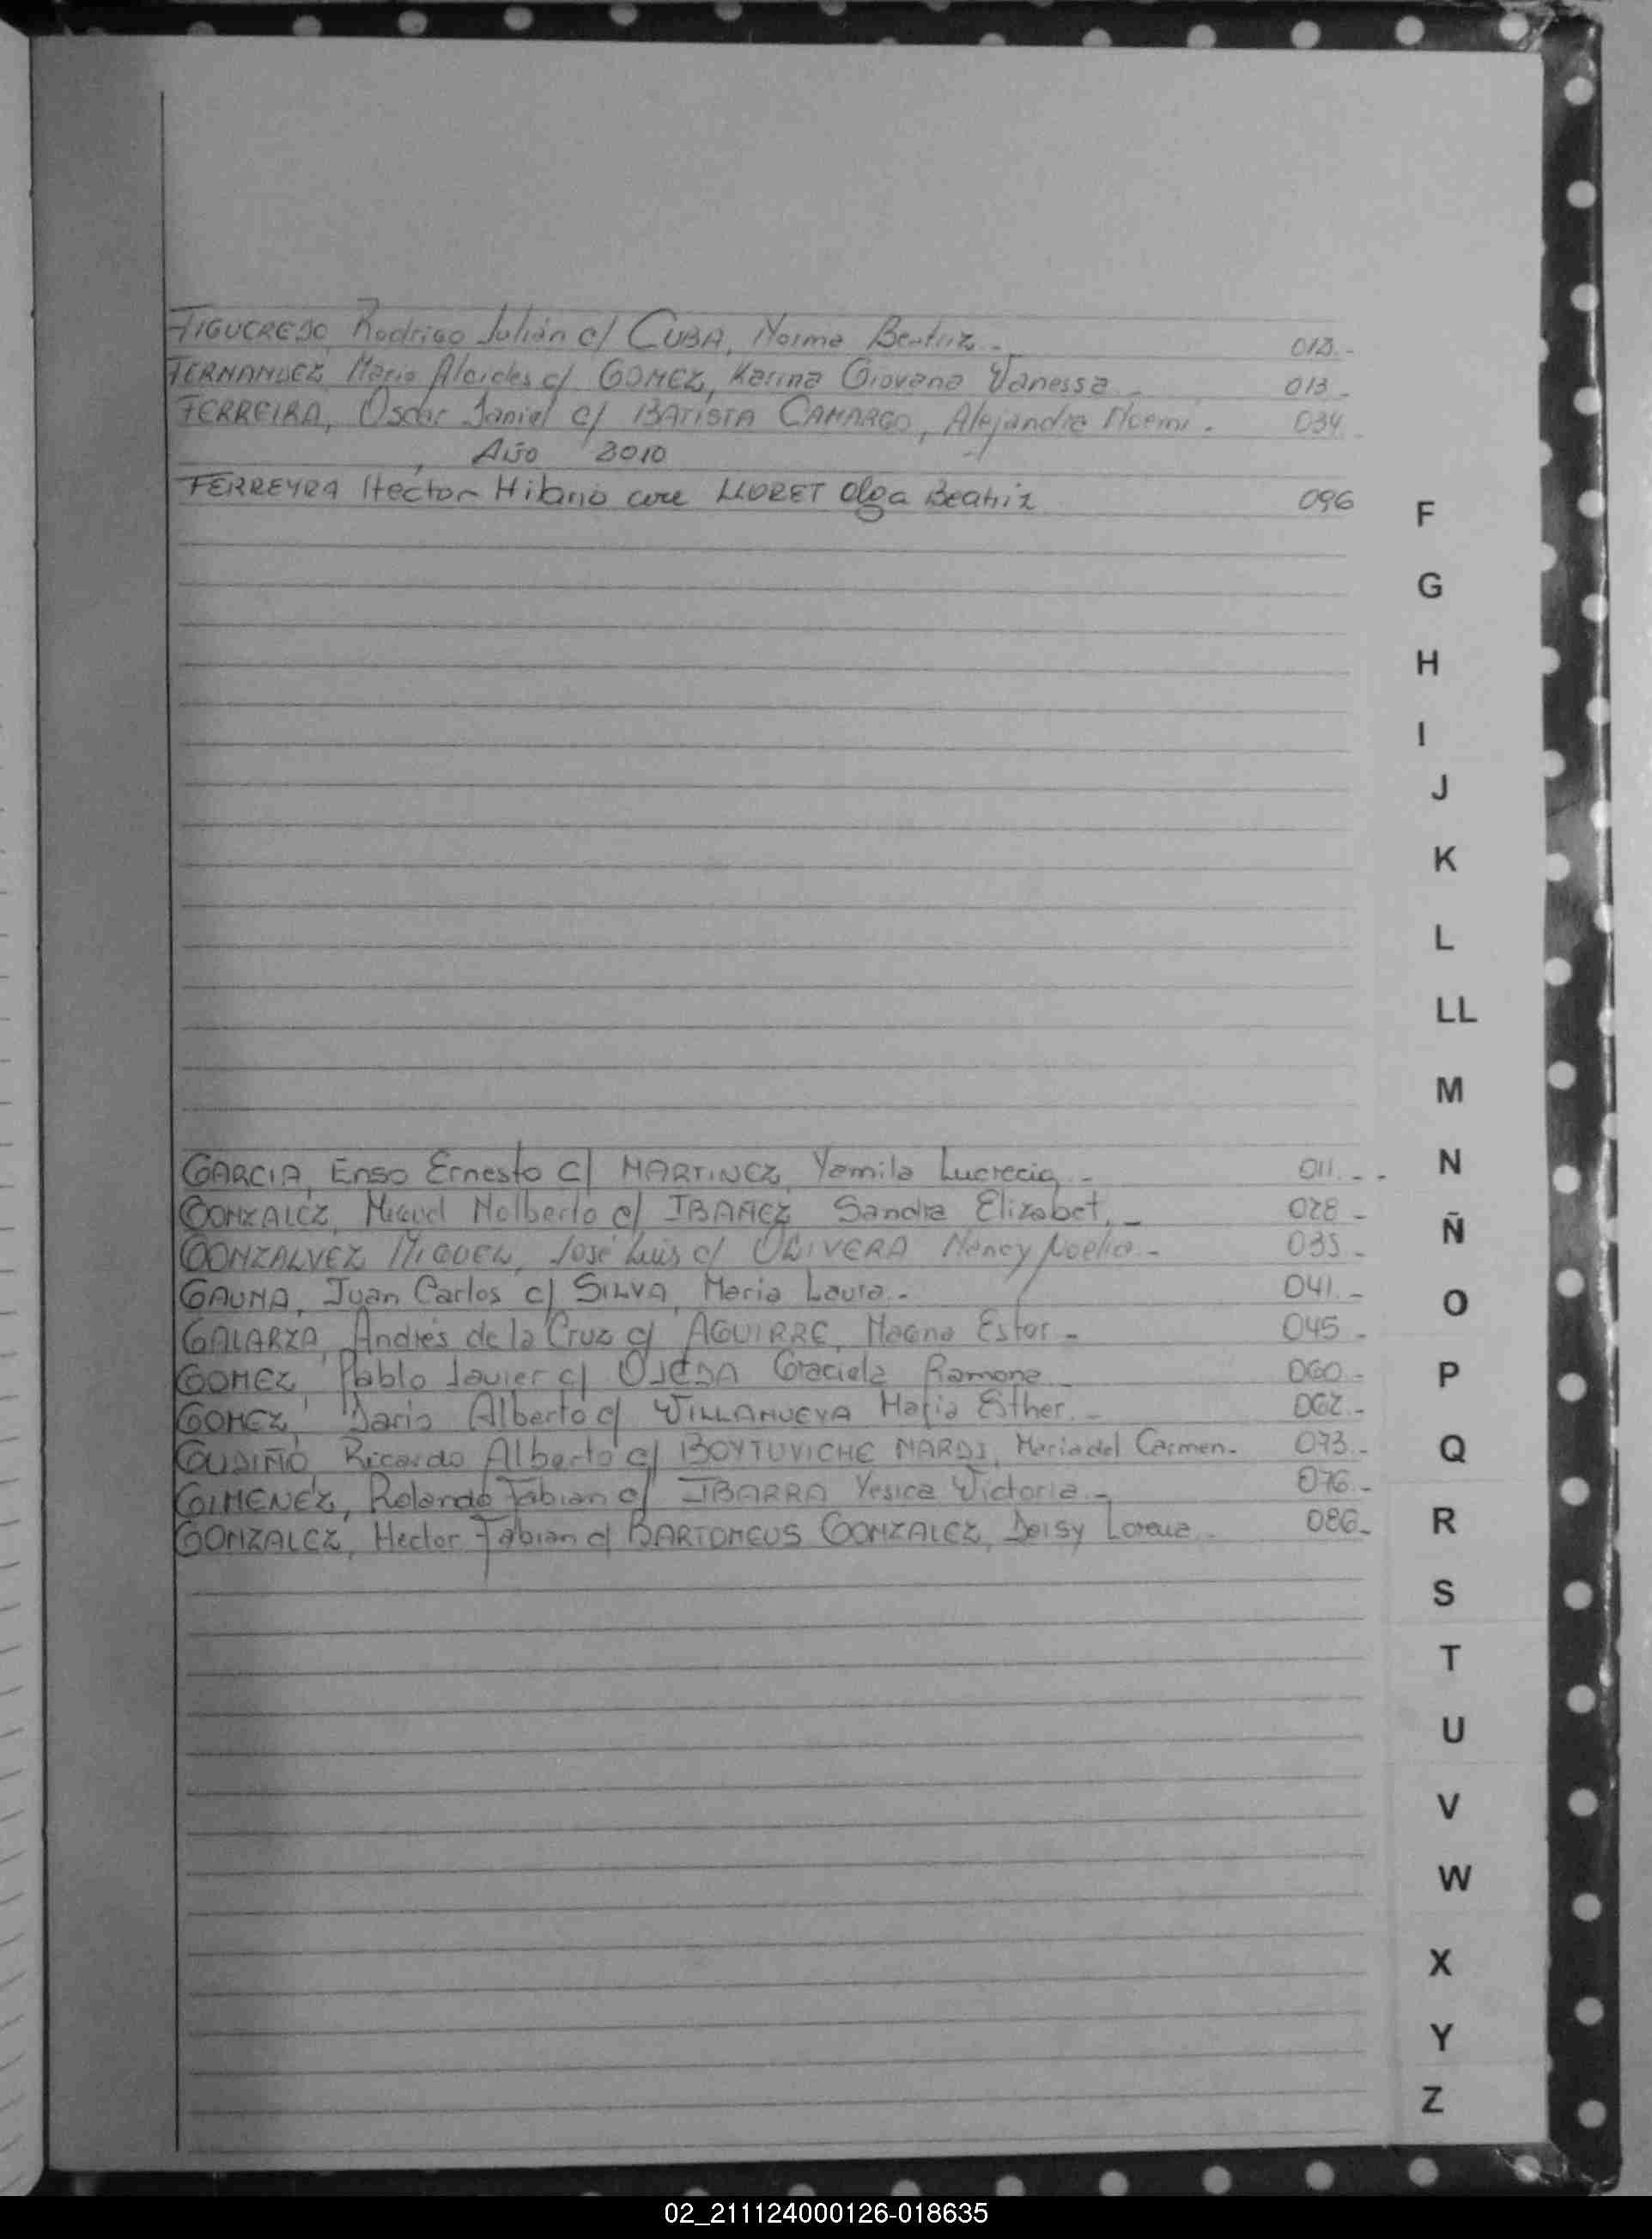 FIGUEREDO, Rodrigo Julián c/ CUBA, Norma Beatriz.- 012.-
FERNANDEZ, Mario Alcides c/ GOMEZ, Karina Giovana Vanessa.- 013.-
FERREIRA, Oscar Daniel c/ BATISTA CAMARGO, Alejandra Noemi.- 034.-
Año 2010
FERREYRA Hector Hilario con LLORET Olga Beatriz 096
F
G
H
I
J
K
L
LL
M
GARCIA, Enso Ernesto c/ MARTINEZ, Yamila Lucrecia.- 011.- N
GONZALEZ, Miguel Nolberto c/ IBAÑEZ Sandra Elizabet.- 028.-
GONZALVEZ MIGUEL, José Luis c/ OLIVERA Nancy Noelia.- 035.- Ñ
GAUNA, Juan Carlos c/ SILVA, Maria Laura.- 041.- O
GALARZA, Andrés de la Cruz c/ AGUIRRE, Magna Ester.- 045.-
GOMEZ, Pablo Javier c/ OJEDA Graciela Ramona.- 060.- P
GOMEZ, Dario Alberto c/ VILLANUEVA Maria Esther.- 062.-
GUDIÑO, Ricardo Alberto c/ BOYTUVICHE NARDI, Maria del Carmen.- 073.- Q
GIMENEZ, Rolando Fabian c/ IBARRA Yesica Victoria.- 076.-
GONZALEZ, Hector Fabian c/ BARTOMEUS GONZALEZ, Deisy Lorena.- 086.- R
S
T
U
V
W
X
Y
Z
02_211124000126-018635